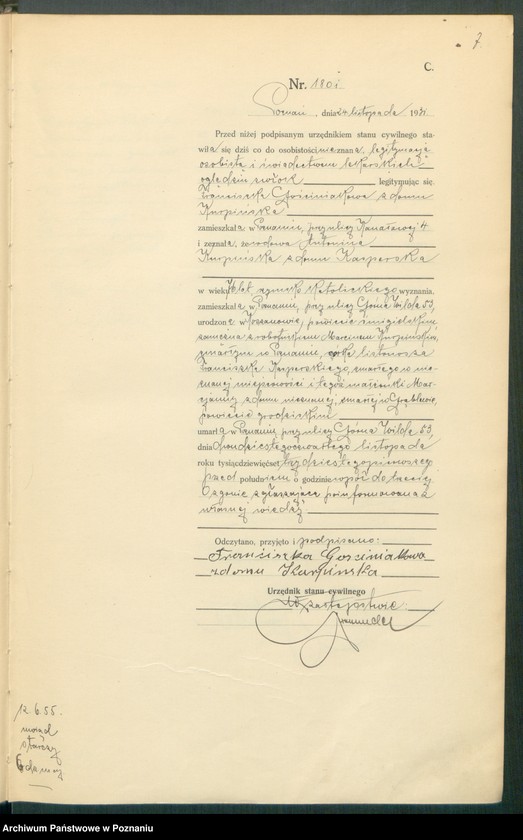 7.
C.
Nr. 1801
Poznań, dnia 24 listopada 1931
Przed niżej podpisanym urzędnikiem stanu cywilnego sta-
wiła się dziś co do osobistości nieznana, legitymacją
osobistą i świadectwem lekarskich
oględzin zwłok legitymując się
Franciszka Gościniakowa z domu
Karpińska
zamieszkała w Poznaniu, przy ulicy Kanałowej 4
i zeznała, że wdowa Antonina
Karpińska z domu Kacperska
w wieku lat, rzymsko katolickiego wyznania,
zamieszkała w Poznaniu, przy ulicy Górna Wilda 53,
urodzona w powiecie śmigielskim,
zamężna z robotnikiem Marcinem Karpińskim,
zmarłym w Poznaniu, córka listonosza
Franciszka Kacperskiego, zmarłego w nie-
znanej miejscowości i tegoż małżonki Mar-
cjanny z domu nieznanej, zmarłej w
powiecie grodziskim
umarła w Poznaniu przy ulicy Górna Wilda 53,
dnia dwudziestegoczwartego listopada
roku tysiącdziewięćset trzydziestegopierwszego
przed południem o godzinie wpół do trzeciej
O zgonie zgłaszająca poinformowana z
własnej wiedzy
Odczytano, przyjęto i podpisano:
Franciszka Gościniakowa
z domu Karpińska
Urzędnik stanu cywilnego
W zastępstwie
12.6.55.
Archiwum Państwowe w Poznaniu